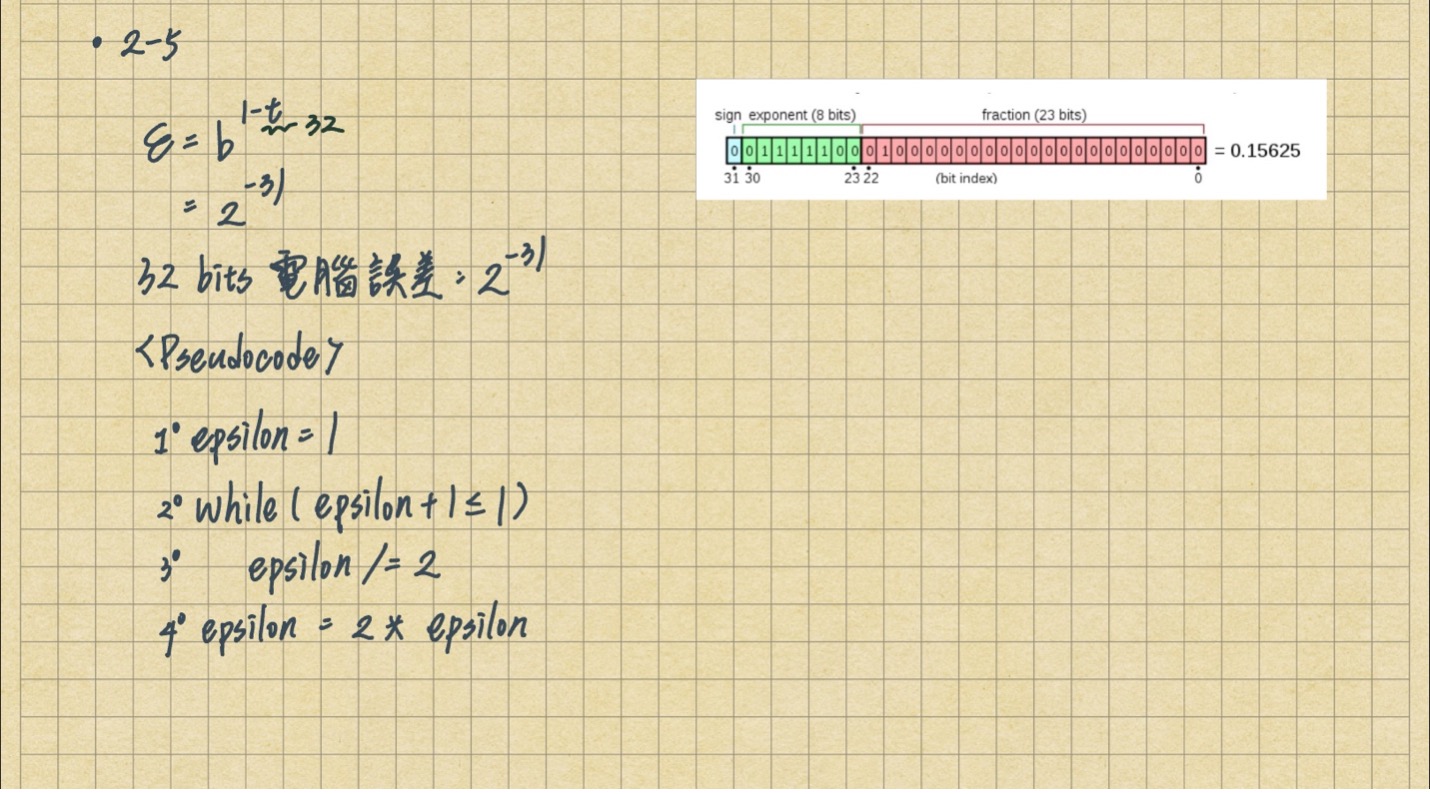 • 2-5
ε = b^1-t 32
= 2^-31
32 bits 電腦誤差：2^-31
<Pseudocode>
1° epsilon = 1
2° while ( epsilon + 1 ≤ 1 )
3° epsilon /= 2
4° epsilon = 2 * epsilon
sign exponent (8 bits) fraction (23 bits)
0 0 1 1 1 1 1 0 0 0 1 0 0 0 0 0 0 0 0 0 0 0 0 0 0 0 0 0 0 0 0 0 = 0.15625
31 30 23 22 (bit index) 0